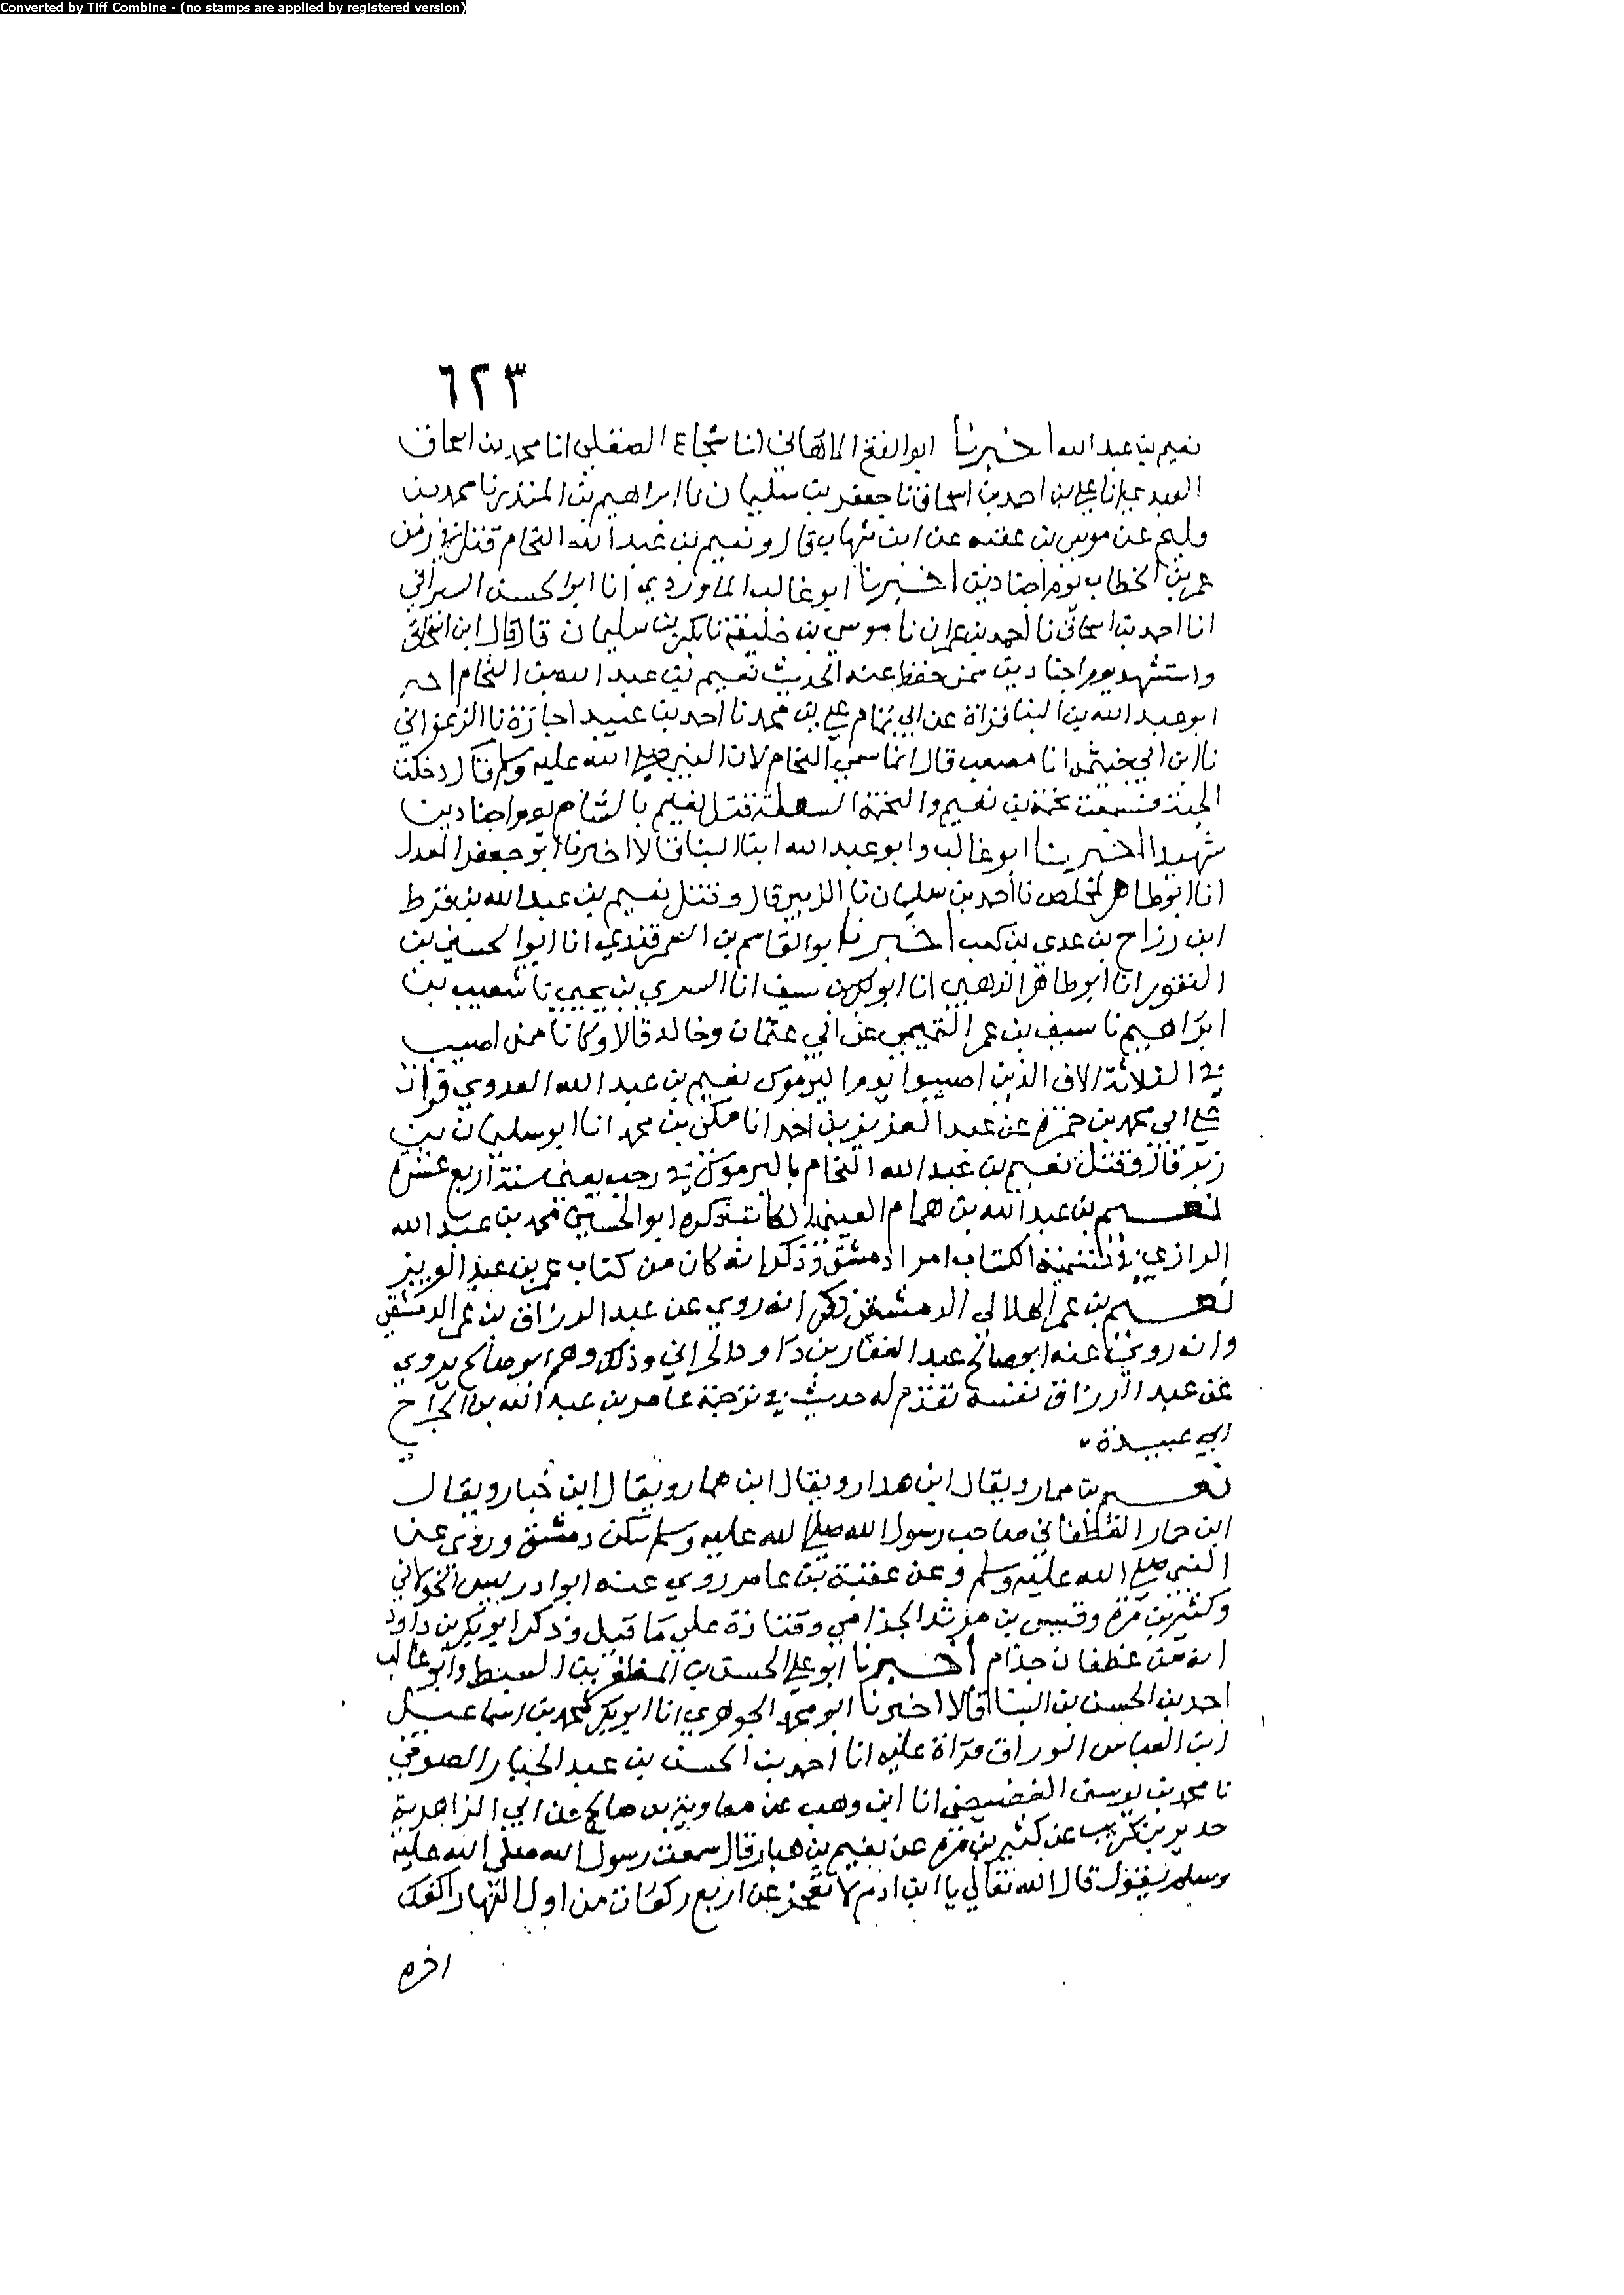 Converted by Tiff Combine - (no stamps are applied by registered version)
٦٢٣
نعيم بن عبد الله اخبرنا ابو الفتح الماهاني انا شجاع الصقلي انا محمد بن اسحاق
العبدي انا علي بن احمد بن اسحاق نا جعفر بن سليمان نا ابراهيم بن المنذر نا محمد بن
وليح عن موسى بن عقبه عن ابن شهاب قال ونعيم بن عبد الله النحام قتل في زمن
عمر بن الخطاب يوم اجنادين اخبرنا ابو غالب الماوردي انا ابو الحسن السيرافي
انا احمد بن اسحاق نا احمد بن عمران نا موسى بن خليفة نا بكر بن سليمان قال قال ابن اسحاق
واستشهد يوم اجنادين ممن حفظ عنه الحديث نعيم بن عبد الله بن النحام اخبر
ابو عبد الله بن البنا قراة عن ابي تمام علي بن محمد نا احمد بن عبيد اجازة نا الزعفراني
نا ابن ابي خيثمة انا مصعب قال انما سمي النحام لان النبي صلى الله عليه وسلم قال دخلت
الجنة فسمعت نحمة من نعيم والنحمة السعلة قتل نعيم بالشام يوم اجنادين
شهيدا اخبرنا ابو غالب وابو عبد الله ابنا البنا قالا اخبرنا ابو جعفر المعدل
انا ابو طاهر المخلص نا احمد بن سليمان نا الزبير قال وقتل نعيم بن عبد الله بن قرط
ابن رزاح بن عدي بن كعب اخبرنا ابو القاسم بن السمرقندي انا ابو الحسين بن
النقور انا ابو طاهر الذهبي انا ابو بكر بن سيف انا السري بن يحيى نا شعيب بن
ابراهيم نا سيف بن عمر التميمي عن ابي عثمان وخالد قالا وكان ممن اصيب
في الثلاثة الاف الذين اصيبوا يوم اليرموك نعيم بن عبد الله العدوي قرات
علي ابي محمد بن حمزة عن عبد العزيز بن احمد انا مكي بن محمد انا ابو سليمان بن
زبر قال وقتل نعيم بن عبد الله النحام باليرموك في رجب يعني سنة اربع عشرة
نعيم بن عبد الله بن همام القيني الكاتب ذكره ابو الحسين محمد بن عبد الله
الرازي في تسمية كتاب امرا دمشق وذكر انه كان من كتاب عمر بن عبد العزيز
نعيم بن عمر الهلالي الدمشقي ذكر انه روى عن عبد الرزاق بن عمر الدمشقي
وانه روى عنه ابو صالح عبد الغفار بن داود الحراني وذلك وهم ابو صالح يروي
عن عبد الرزاق نفسه تقدم له حديث في ترجمة عامر بن عبد الله بن الجراح
ابي عبيدة
نعيم بن همار ويقال ابن هدار ويقال ابن همار ويقال ابن خبار ويقال
ابن حمار الغطفاني صاحب رسول الله صلى الله عليه وسلم سكن دمشق وروى عن
النبي صلى الله عليه وسلم وعن عقبة بن عامر روى عنه ابو ادريس الخولاني
وكثير بن مرة وقيس بن مرثد الجذامي وقتادة على ما قيل وذكر ابو بكر بن داود
انه من غطفان جذام اخبرنا ابو علي الحسن بن المظفر بن السبط وابو غالب
احمد بن الحسن بن البنا قالا اخبرنا ابو محمد الجوهري انا ابو بكر محمد بن اسماعيل
ابن العباس الوراق قراة عليه انا احمد بن الحسن بن عبد الجبار الصوفي
نا محمد بن يوسف الغضيضي انا ابن وهب عن معاوية بن صالح عن ابي الزاهرية
حدير بن كريب عن كثير بن مرة عن نعيم بن هبار قال سمعت رسول الله صلى الله عليه
وسلم يقول قال الله تعالى يا ابن ادم لا تعجز عن اربع ركعات من اول النهار اكفك
اخره